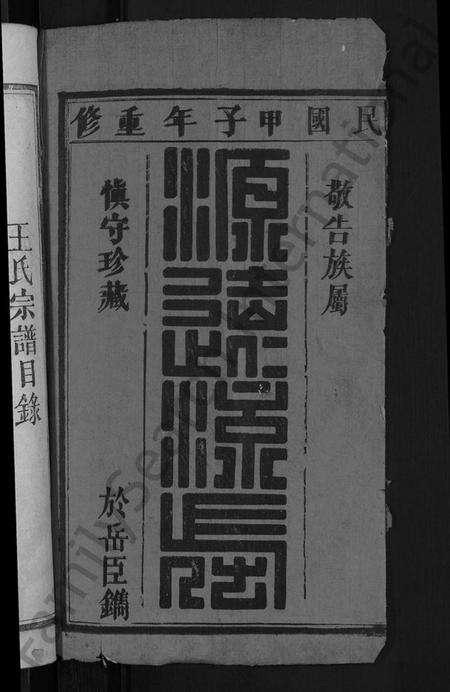 民國甲子年重修
敬告族屬
源遠流長
慎守珍藏
於岳臣鐫
王氏宗譜目錄
FamilySearch International